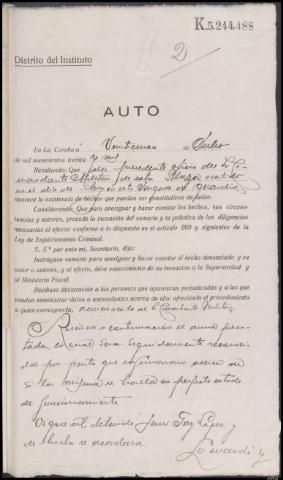 K.5.244.488
2
Distrito del Instituto
AUTO
En La Coruña a Veinticinco de Julio
de mil novecientos treinta y
Resultando: Que por el precedente oficio del Sr. Co-
mandante Militar de esta Plaza recibido
en el día de hoy en este Juzgado de Guardia
aparece la existencia de hechos que puedan ser constitutivos de delito.
Considerando: Que para averiguar y hacer constar los hechos, sus circuns-
tancias y autores, procede la incoación del sumario y la práctica de las diligencias
necesarias al efecto conforme a lo dispuesto en el artículo 299 y siguientes de la
Ley de Enjuiciamiento Criminal.
S. S.ª por ante mí, Secretario, dijo:
Instrúyase sumario para averiguar y hacer constar el hecho denunciado y su
autor o autores, y al efecto, dése conocimiento de su incoación a la Superioridad y
al Ministerio Fiscal.
Recíbase declaración a las personas que aparezcan perjudicadas y a las que
puedan suministrar datos o antecedentes acerca de ello ofreciendo el procedimiento
a quien corresponda, al Comandante Militar.
a continuación el arma
la cual será seguidamente reconoci-
da por perito que informará acerca de
si la misma se halla en perfecto estado
de funcionamiento.
detenido López y
de hacerlo se acordará.
Lo mandó y